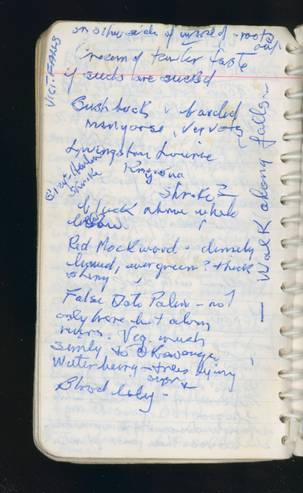 VICT. FALLS
on other side of world - roots
out
if seeds are sucked
Bushbuck, banded
mongoose, Vervets
Livingston Lourie
Shrike
black above white
below
Red Mockwood - densely
leaved, evergreen? thick
shiny
False Date Palm - not
only here but along
rivers. Veg. much
simily to Okavango
Waterberry - trees lying
Blood lily -
— Walk along falls —